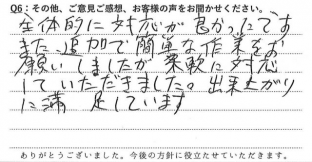 Q6：その他、ご意見ご感想、お客様の声をお聞かせください。
全体的に対応が良かったです
また、追加で簡単な作業をお
願いしましたが柔軟に対応
していただきました。出来上がり
に満足しています
ありがとうございました。今後の方針に役立たせていただきます。